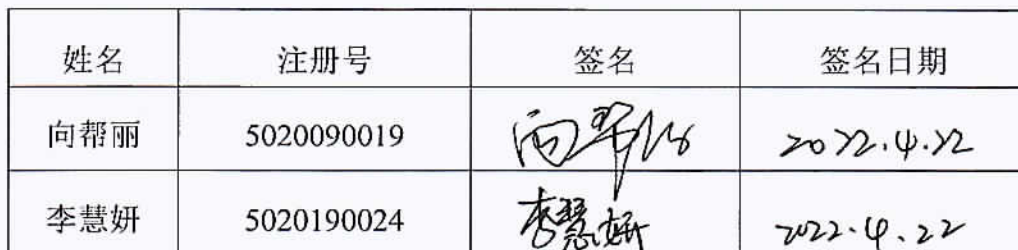 姓名 注册号 签名 签名日期
向帮丽 5020090019 向帮丽 2022.4.22
李慧妍 5020190024 李慧妍 2022.4.22